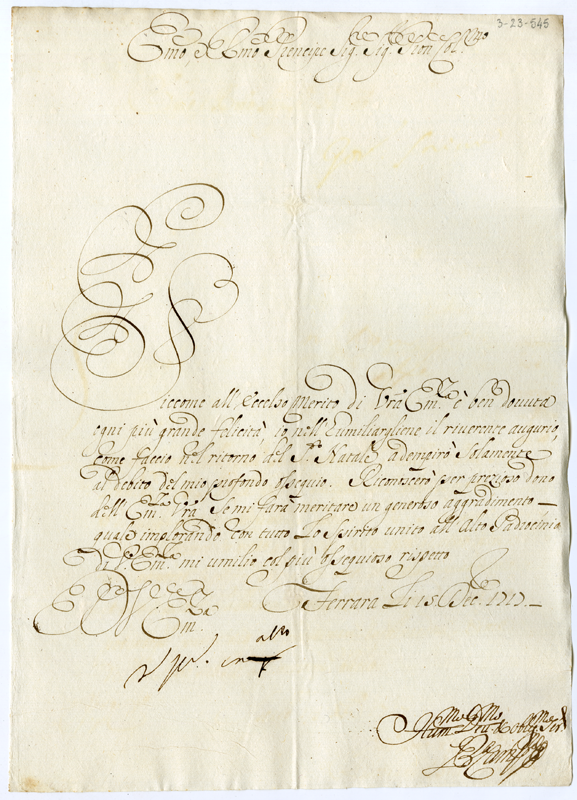 3-23-545
Emo e Rmo Principe Sig. Sig. Pron Col.mo
Siccome all'Eccelso Merito di Vra Em.za è ben dovuta
ogni più grande felicità, io nell'Umiliargliene il riverente augurio,
come faccio nel ritorno del S.to Natale, adempirò solamente
al debito del mio profondo ossequio. Riconoscerò per prezioso dono
dell'Em.za Vra se mi farà meritare un generoso aggradimento
quale implorando con tutto lo spirito unito all'Alto Padrocinio
di V. Em.za mi umilio col più ossequioso rispetto
Ferrara Li 15 Dec.re 1717.
Em.
Hum.mo Dev.mo et Obblig.mo Ser.